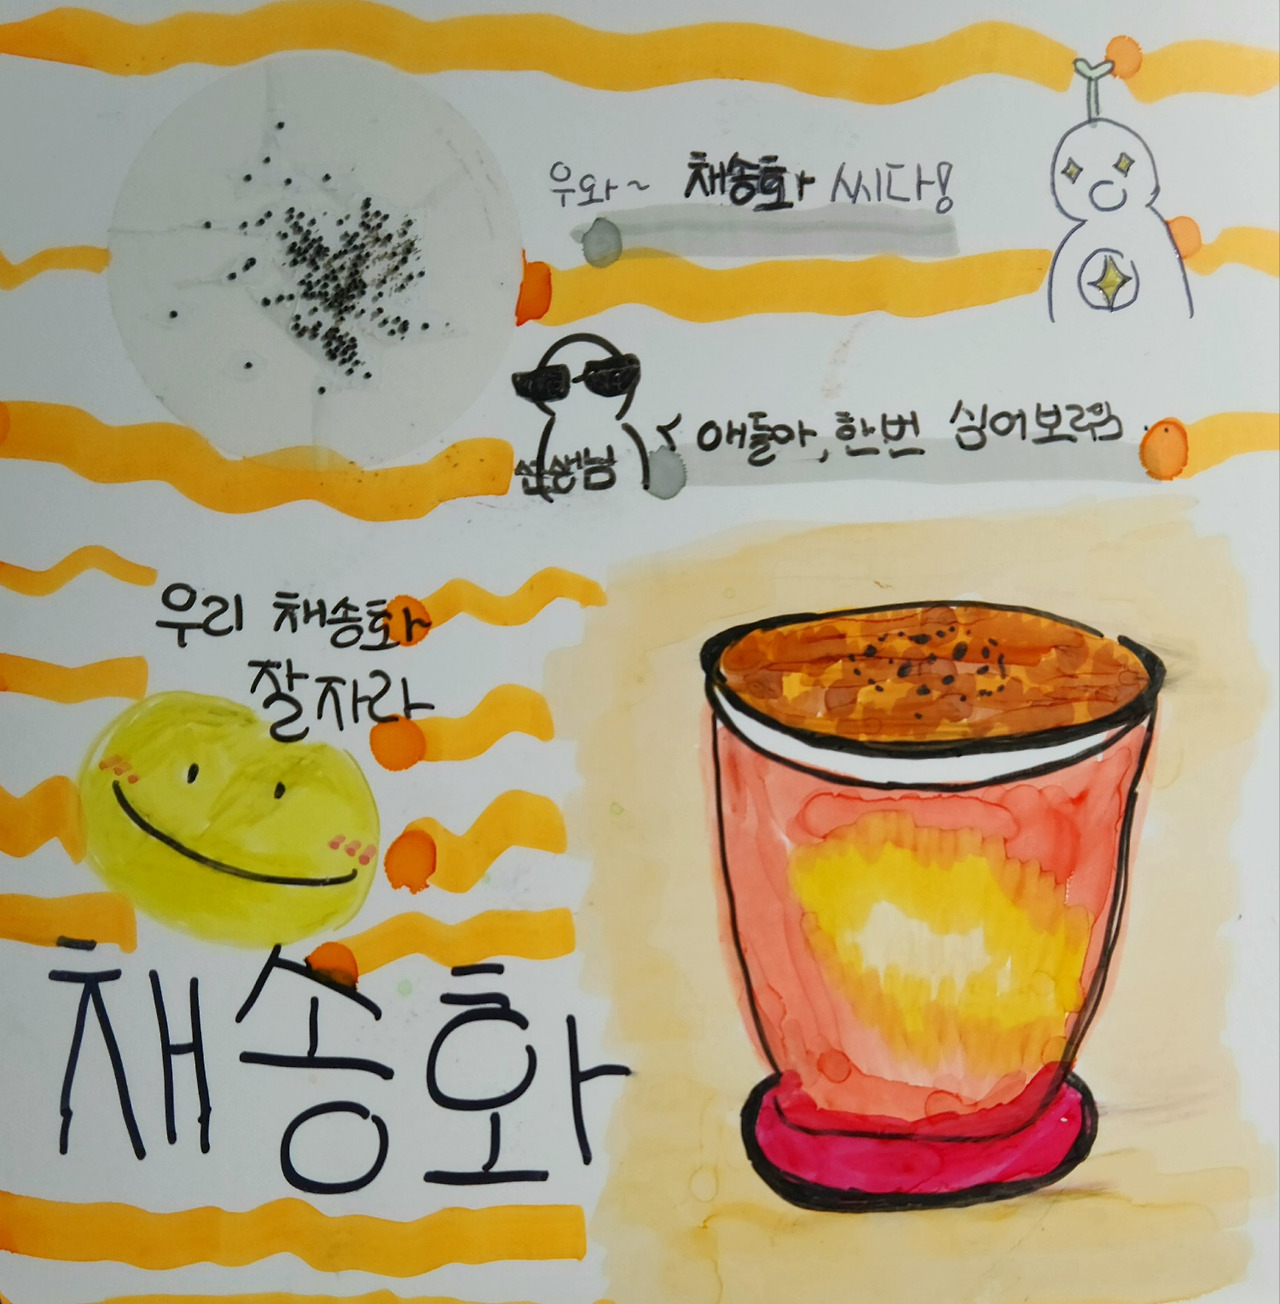 우와~ 채송화 씨다!
얘들아, 한번 심어보렴
선생님
우리 채송화
잘자라
채송화